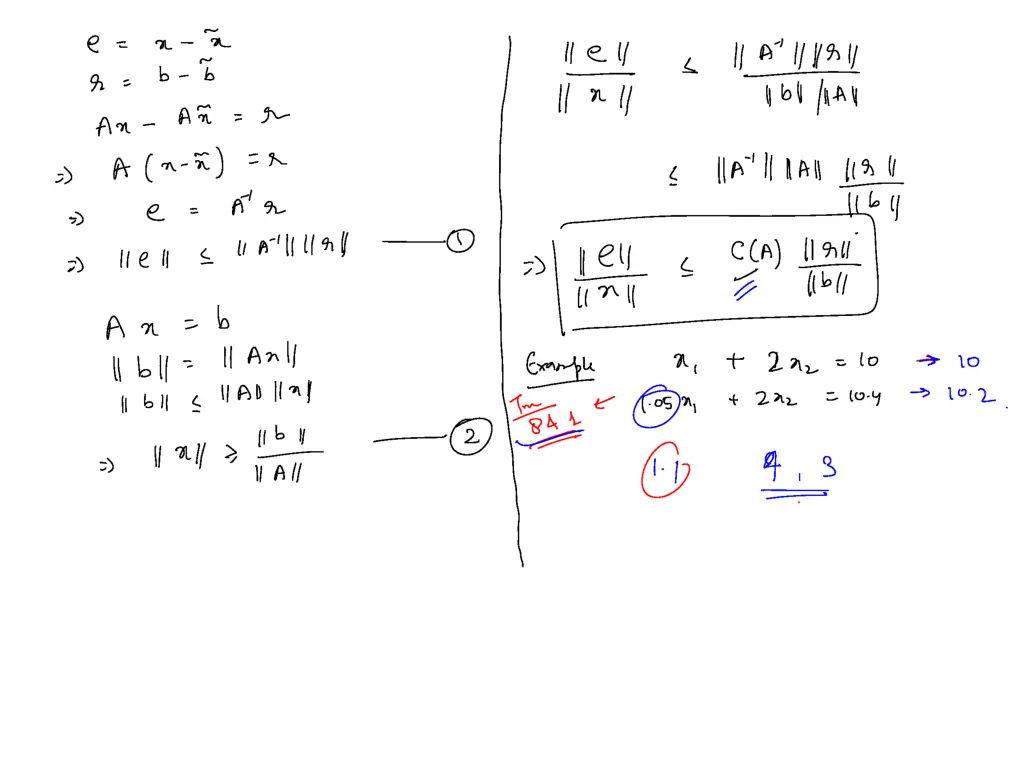 e = x - x̃
r = b - b̃
Ax - Ax̃ = r
=> A (x - x̃) = r
=> e = A⁻¹ r
=> ||e|| ≤ ||A⁻¹|| ||r|| —— ①
A x = b
||b|| = ||Ax||
||b|| ≤ ||A|| ||x||
=> ||x|| ≥ ||b|| / ||A|| —— ②
||e|| / ||x|| ≤ ||A⁻¹|| ||r|| / ||b|| / ||A||
≤ ||A⁻¹|| ||A|| ||r|| / ||b||
=> ||e|| / ||x|| ≤ C(A) ||r|| / ||b||
Example x₁ + 2x₂ = 10 → 10
841 ← 1.05 x₁ + 2x₂ = 10.4 → 10.2
1.1 4, 3